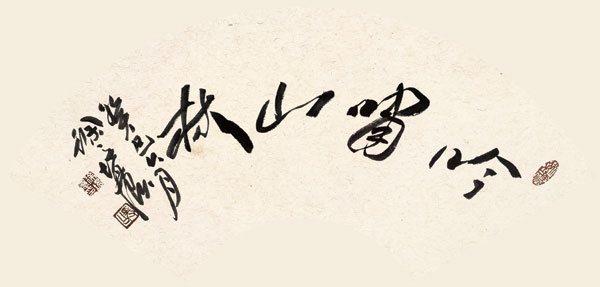 吟嘯山林
癸巳六月